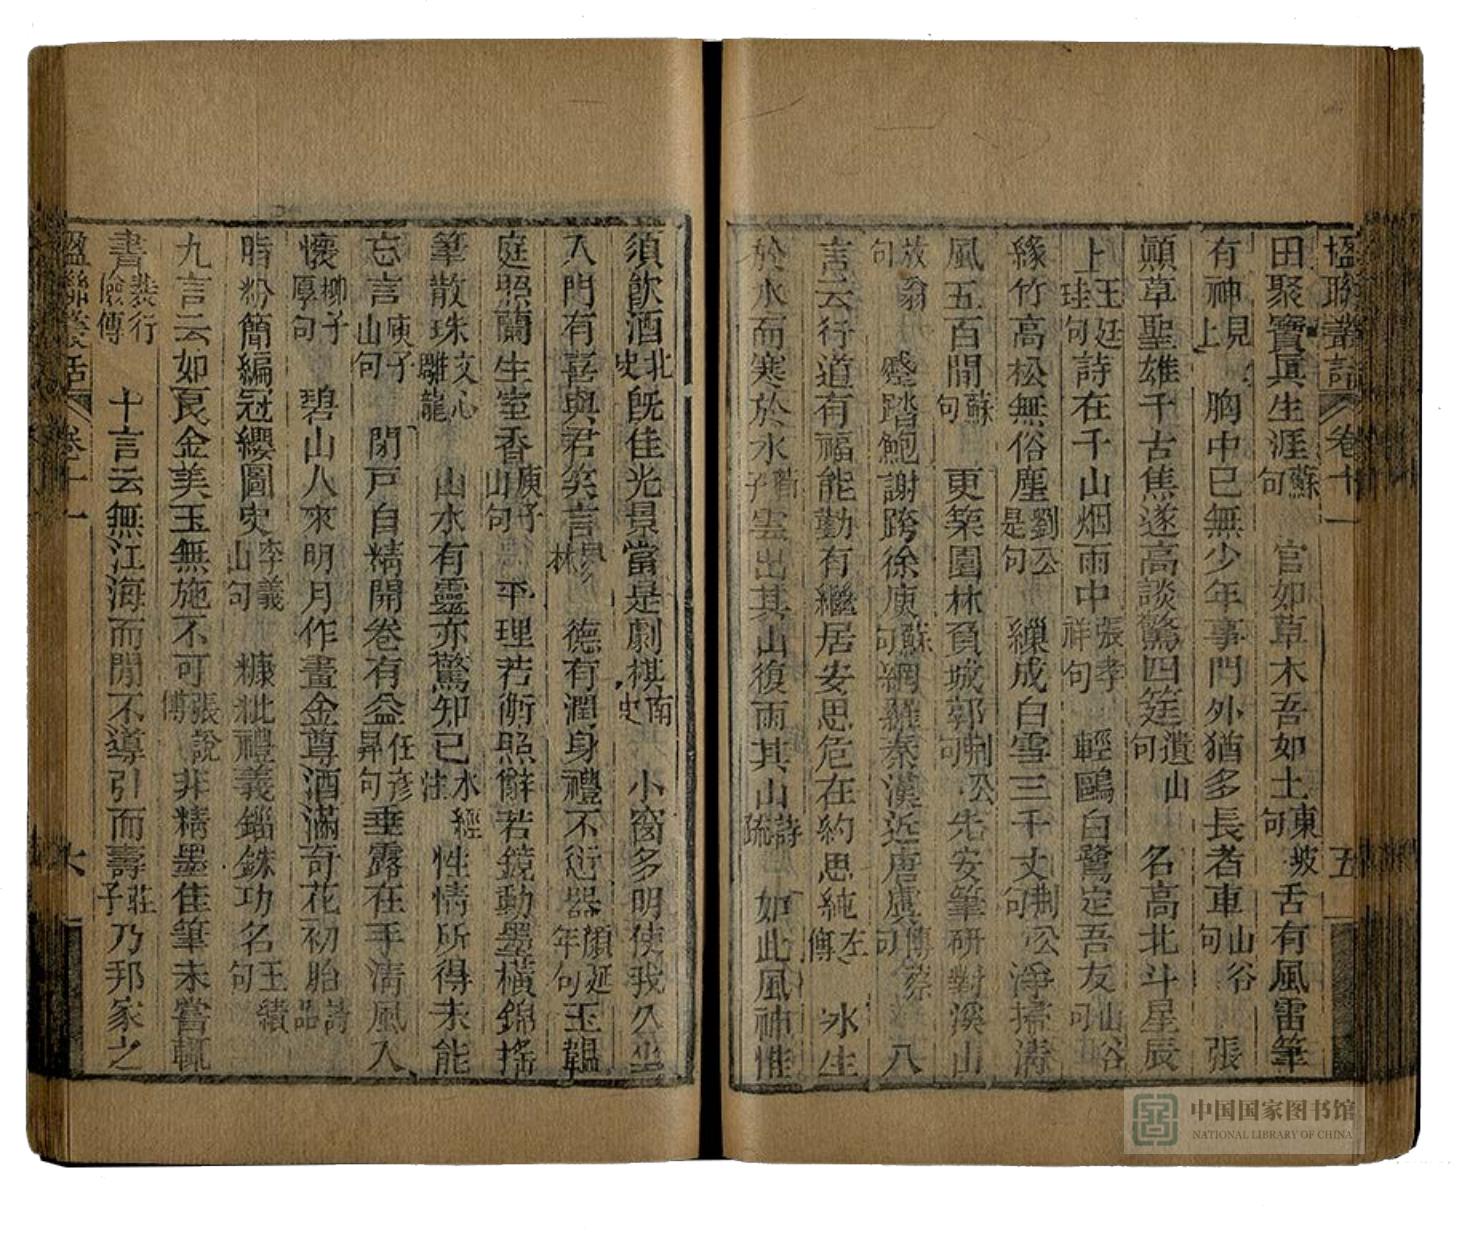 楹聯叢話 卷十一 五
田聚寶眞生涯蘇句 官如草木吾如土東坡句舌有風雷筆
有神見上 胸中已無少年事門外猶多長者車山谷句 張
顚草聖雄千古焦遂高談驚四筵遺山句 名高北斗星辰
上王廷珪句詩在千山烟雨中張孝祥句 輕鷗白鷺定吾友山谷句
緣竹高松無俗塵劉公是句 繰成白雪三千丈荆公句淨掃清
風五百間蘇句 更築園林負城郭荆公句先安筆研對溪山
放翁句 蹙踏鮑謝跨徐庾蘇句網羅秦漢近唐虞傅察句 八
言云行道有福能勤有繼居安思危在約思純左傳 冰生
於水而寒於水荀子雲出其山復雨其山詩疏 如此風神惟
須飮酒北史旣佳光景當是劇棋南史 小窗多明使我久坐
入門有喜與君笑言易林 德有潤身禮不愆器顏延年句玉韞
庭照蘭生室香庾子山句 平理若衡照辭若鏡動墨橫錦搖
筆散珠文心雕龍 山水有靈亦驚知己水經注 性情所得未能
忘言庾子山句 閉戸自精開卷有益任彥昇句垂露在手清風入
懷柳子厚句 碧山人來明月作畫金尊酒滿奇花初胎詩品
脂粉簡編冠纓圖史李義山句 糠粃禮義錙銖功名王績句
九言云如良金美玉無施不可張說傳 非精墨佳筆未嘗輒
書裴行儉傳 十言云無江海而閒不導引而壽莊子乃邦家之
楹聯叢話 卷十一 六
中国国家图书馆
NATIONAL LIBRARY OF CHINA